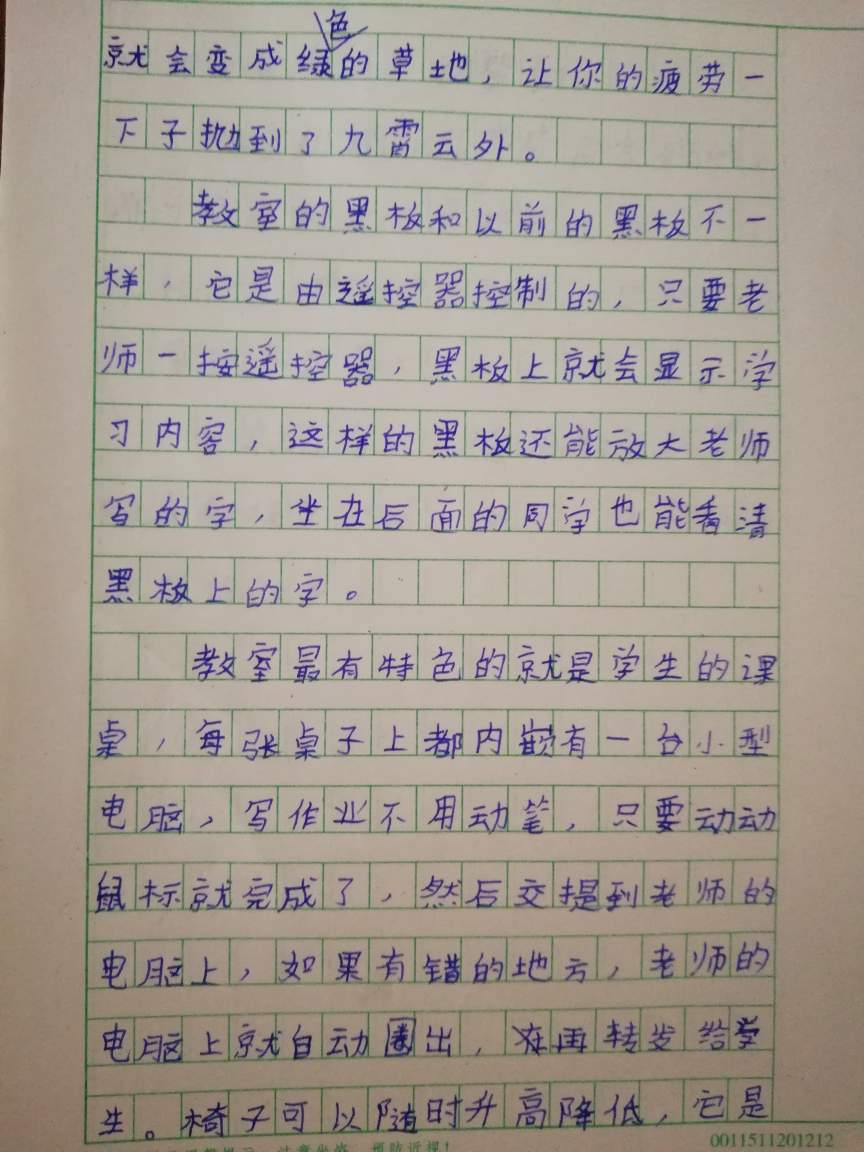 就会变成绿色的草地，让你的疲劳一
下子抛到了九霄云外。
教室的黑板和以前的黑板不一
样，它是由遥控器控制的，只要老
师一按遥控器，黑板上就会显示学
习内容，这样的黑板还能放大老师
写的字，坐在后面的同学也能看清
黑板上的字。
教室最有特色的就是学生的课
桌，每张桌子上都内嵌有一台小型
电脑，写作业不用动笔，只要动动
鼠标就完成了，然后交提到老师的
电脑上，如果有错的地方，老师的
电脑上就自动圈出，再转发给学
生。椅子可以随时升高降低，它是
预防近视！
0011511201212